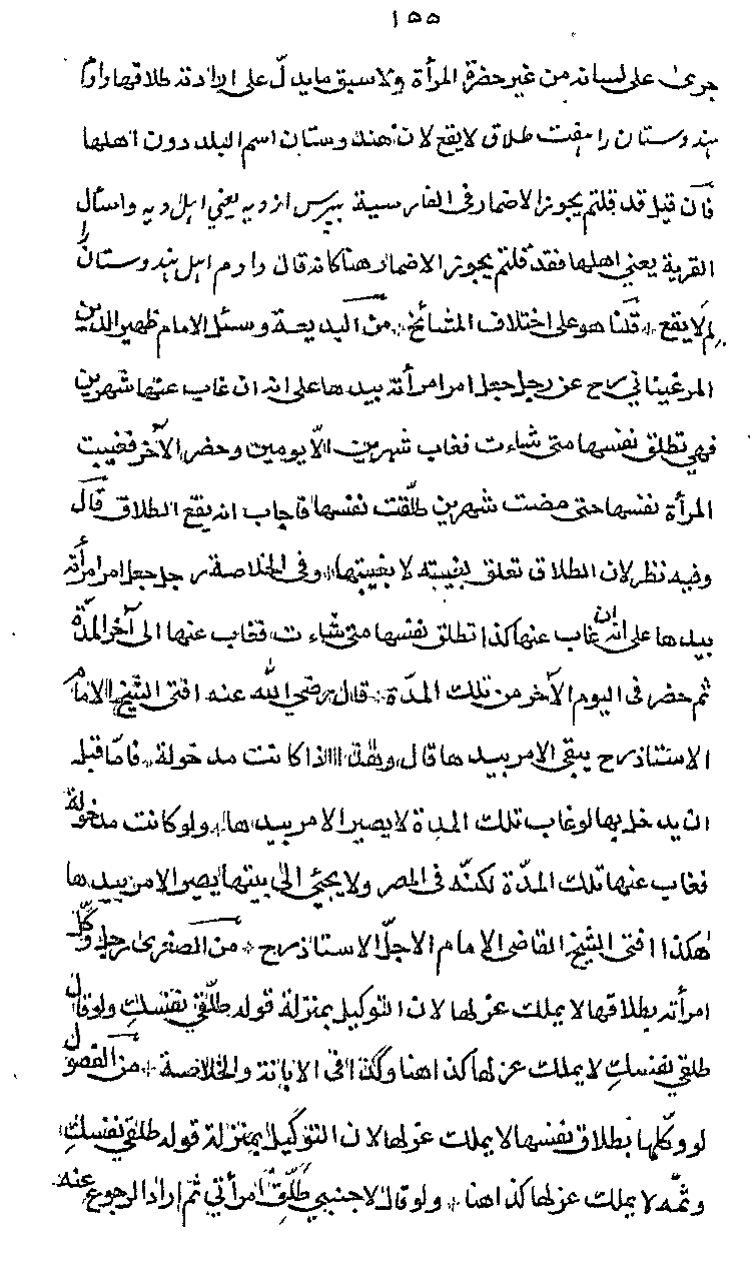 ١٥٥
جرى على لسانه من غير حضرة المرأة ولا سبق ما يدلّ على ارادته طلاقها وادم
هندوستان را هفت طلاق لا يقع لان هندوستان اسم البلد دون اهلها
فان قيل قد قلتم يجوز الاضمار فى الفارسية بپرس از ديه يعني اهل ديه واسأل
القرية يعني اهلها فقد قلتم يجوز الاضمار وهنا كانه قال دادم اهل هندوستان را
لِم لا يقع * قلنا هو على اختلاف المشائخ * من البديعة وسئل الامام ظهير الدين
المرغيناني رح عن رجل جعل امر امرأته بيدها على انه ان غاب عنها شهرين
فهي تطلق نفسها متى شاءت فغاب شهرين الّا يومين وحضر الآخر فغيبت
المرأة نفسها حتى مضت شهرين طلّقت نفسها فاجاب انه يقع الطلاق قال
وفيه نظر لان الطلاق تعلق بغيبته لا بغيبتها * وفى الخلاصة رجل جعل امر امرأته
بيدها على انه ان غاب عنها كذا تطلق نفسها متى شاءت فغاب عنها الى آخر المدّة
ثم حضر فى اليوم الآخر من تلك المدّة * قال رضي الله عنه افتى الشيخ الامام
الاستاذ رح يبقى الامر بيدها قال وهذا اذا كانت مدخولة * فامّا قبل
ان يدخل بها لو غاب تلك المدة لا يصير الامر بيدها * ولو كانت مدخولة
فغاب عنها تلك المدّة لكنّه فى المصر ولا يجئي الى بيتها يصير الامر بيدها
هكذا افتى الشيخ القاضى الامام الاجلّ الاستاذ رح * من الصغرى رجل وكّل
امرأته بطلاقها لا يملك عزلها لان التوكيل بمنزلة قوله طلّقي نفسكِ ولو قال
طلقي نفسكِ لا يملك عزلها كذا هنا وكذا فى الابانة والخلاصة * من الفصول
لو وكّلها بطلاق نفسها لا يملك عزلها لان التوكيل بمنزلة قوله طلقي نفسكِ
وثمّه لا يملك عزلها كذا هنا * ولو قال لاجنبي طلّق امرأتي ثم اراد الرجوع عنه